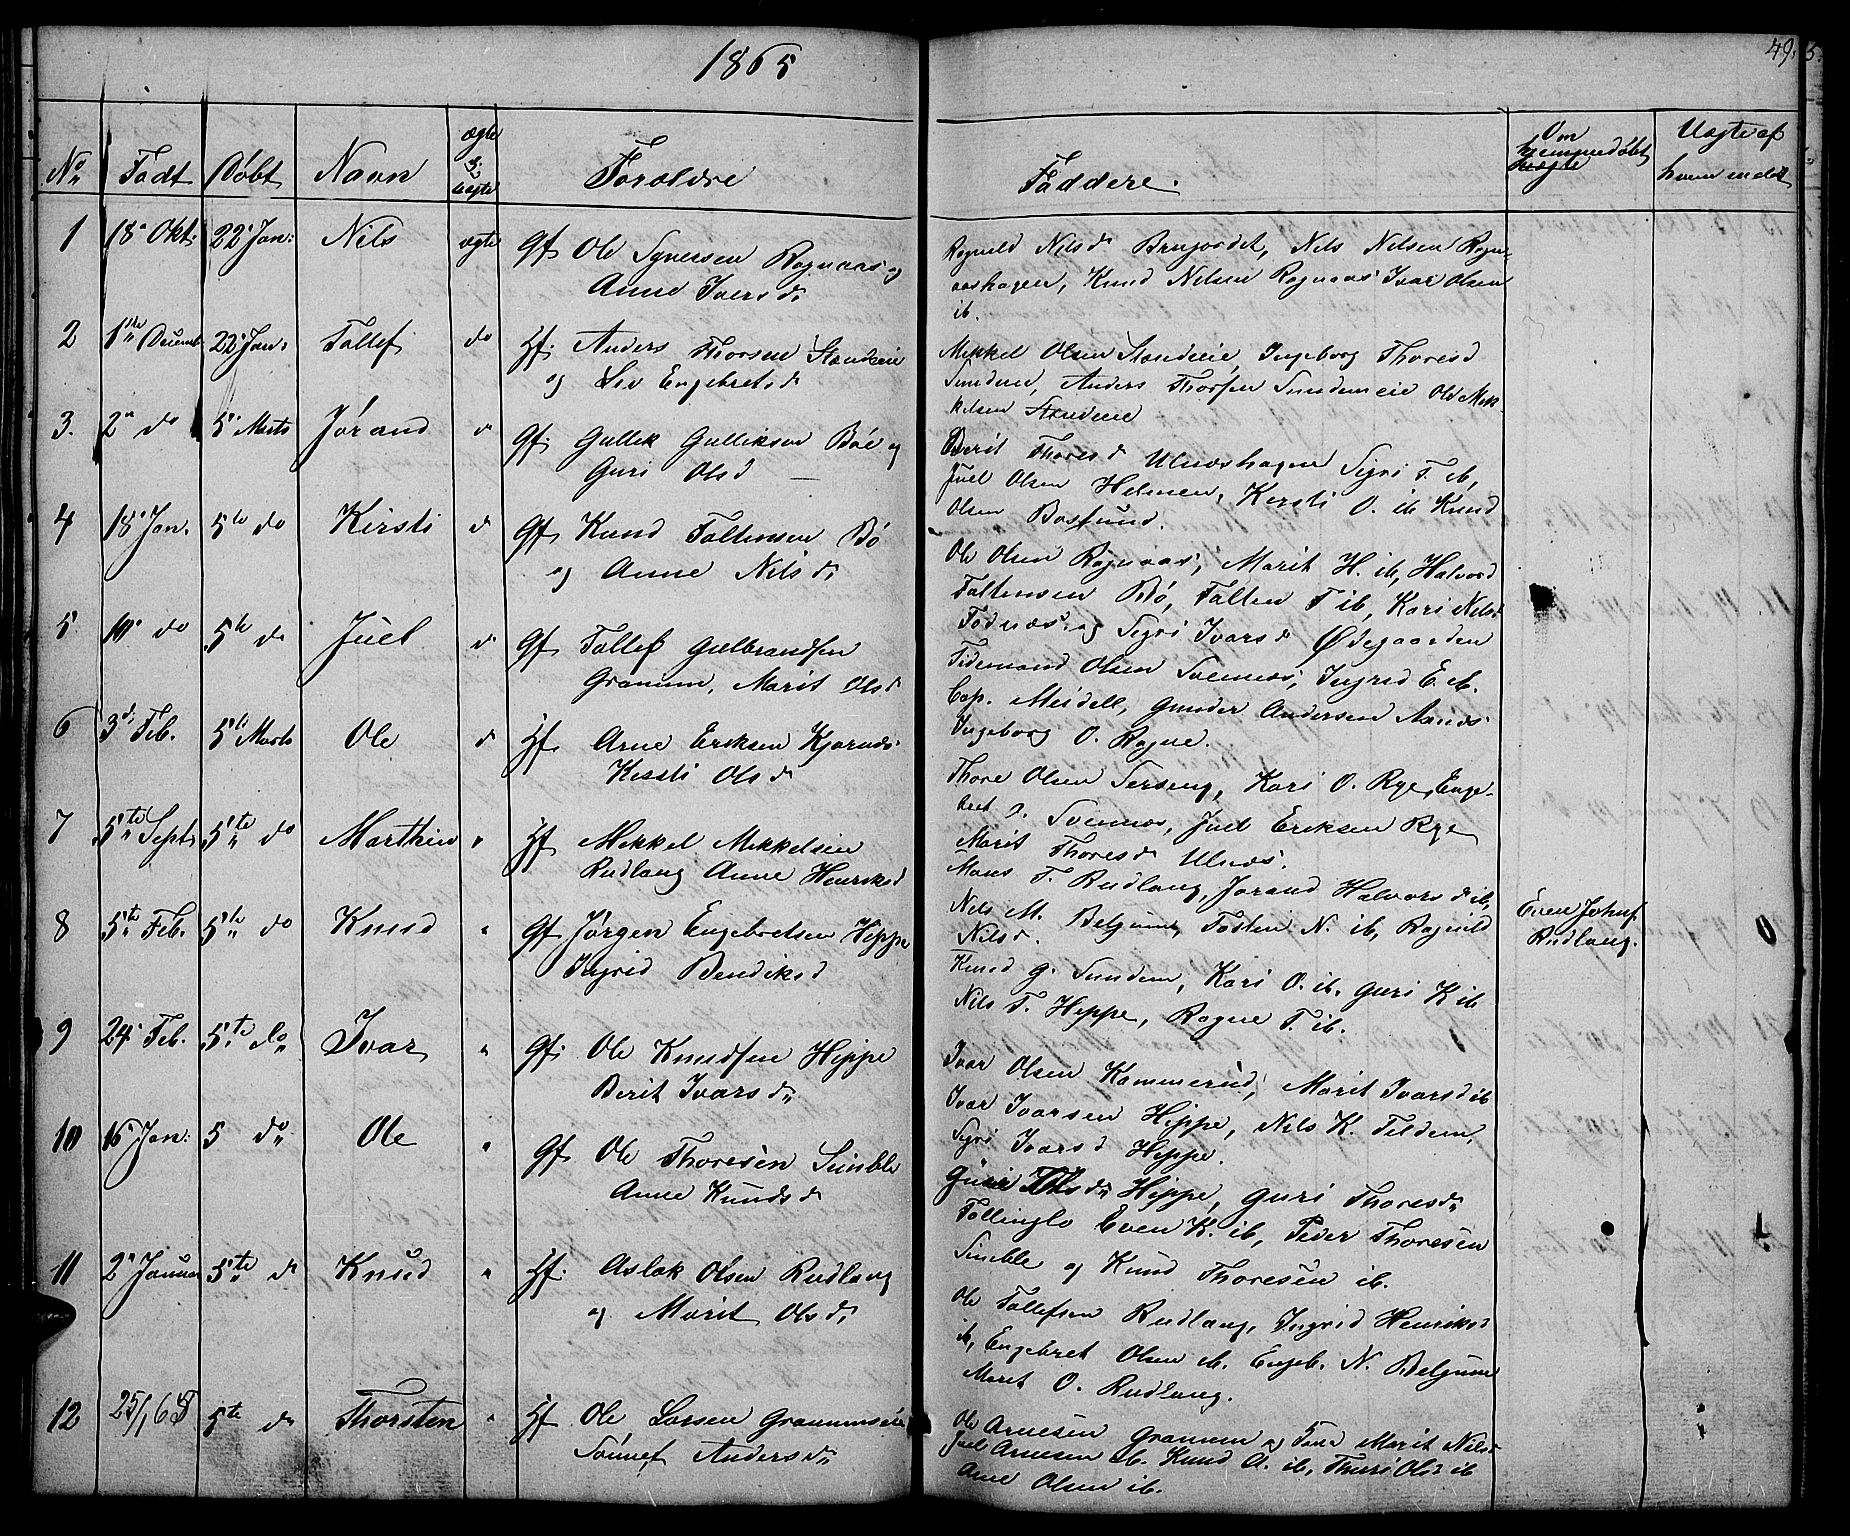 1865
49.
No Født Døbt Navn ægte el. uægte Forældre
Faddere. Om hjemmedøbt Uægte af hvem meldt
1 18 Okt: 22 Jan: Nils ægte Gf. Ole Syversen Rognaas og
Anne Ivers d.
Rognild Nils d. Brujordet, Nils Nilsen Rogn-
aashagen, Knud Nilsen Rognaas Ivar Olsen
ib.
2 1ste Decemb 22 Jan: Tollef do Hf. Anders Thorsen Standeie
og Siv Engebrets d
Mikkel Olsen Standeie, Ingeborg Thores d
Sundene, Anders Thorsen Sundeneie Ole Mik-
kelsen Standeie
3. 2 do 5 Marts Jørand d Gf. Gullik Gulliksen Bøe og
Guri Ols d
Berit Thores d Ulnæshagen Sigri T. ib,
Juel Olsen Helmen, Kersti O. ib Knud
Olsen Baslund.
4 18 Jan. 5te do Kirsti d Gf Knud Tollensen Bø
og Anne Nils d.
Ole Olsen Rognaas, Marit H. ib, Halvord
Foltensen Bø, Folten T ib, Kari Nils d
Fodnæs, og Sigri Ivars d Ødegaarden
5 10 do 5te do Juel d Gf Tollef Gulbrandsen
Granum, Marit Ols d
Tidemand Olsen Svennæs, Ingrid E. ib.
Cap. Meidell, Gunder Andersen Aanæs
Ingeborg O. Rogne.
6 3d. Feb. 5te Marts Ole d Hf. Arne Eriksen Kjørnæs
Kersti Ols d
Thore Olsen Sørseng, Kari O. Rye, Enge-
bret J. Svennæs, Juel Eriksen Rye
Marit Thores d Ulnæs.
7 5te Sept. 5te do Marthin " Hf Mikkel Mikkelsen
Rudlang Anne Henriks d
Mons T. Rudlang, Jorand Halvors d ib,
Nils M. Belgum, Tosten N. ib, Rognild
Nils d.
Even Johns.
Rudlang.
8 5te Feb. 5te do Knud " Gf Jørgen Engebretsen Hippe
Ingrid Bendiks d
Knud G. Sundem, Kari O. ib. Guri K ib
Nils T. Hippe, Rogne T. ib.
9 24 Feb. 5te do Ivar " Gf. Ole Knudsen Hippe
Berit Ivars d.
Ivar Olsen Kammerud, Marit Ivars d ib
Ivar Ivarsen Hippe, Nils K. Tildem,
Sigri Ivars d Hippe.
10 16 Jan: 5 do Ole " Gf. Ole Thoresen Semble
Anne Knuds d
Guri d. Hippe, Guri Thores d.
Tollinglo Even K. ib, Peder Thoresen
Semble og Knud Thoresen ib.
11 2 Januar 5te d Knud " Hf. Aslak Olsen Rudlang
og Marit Ols d.
Ole Tollefsen Rudlang, Ingrid Henriks d
ib, Engebret Olsen ib. Engeb. N. Belgum
Marit O. Rudlang.
12 25/1 65 5te do Thorsten " Hf Ole Larsen Granumseie
Sønnef Anders d.
Ole Arnesen Granum og Marit Nils d
Juel Arnesen ib. Knud A. ib, Thuri Ols d ib
Arne Olsen ib.